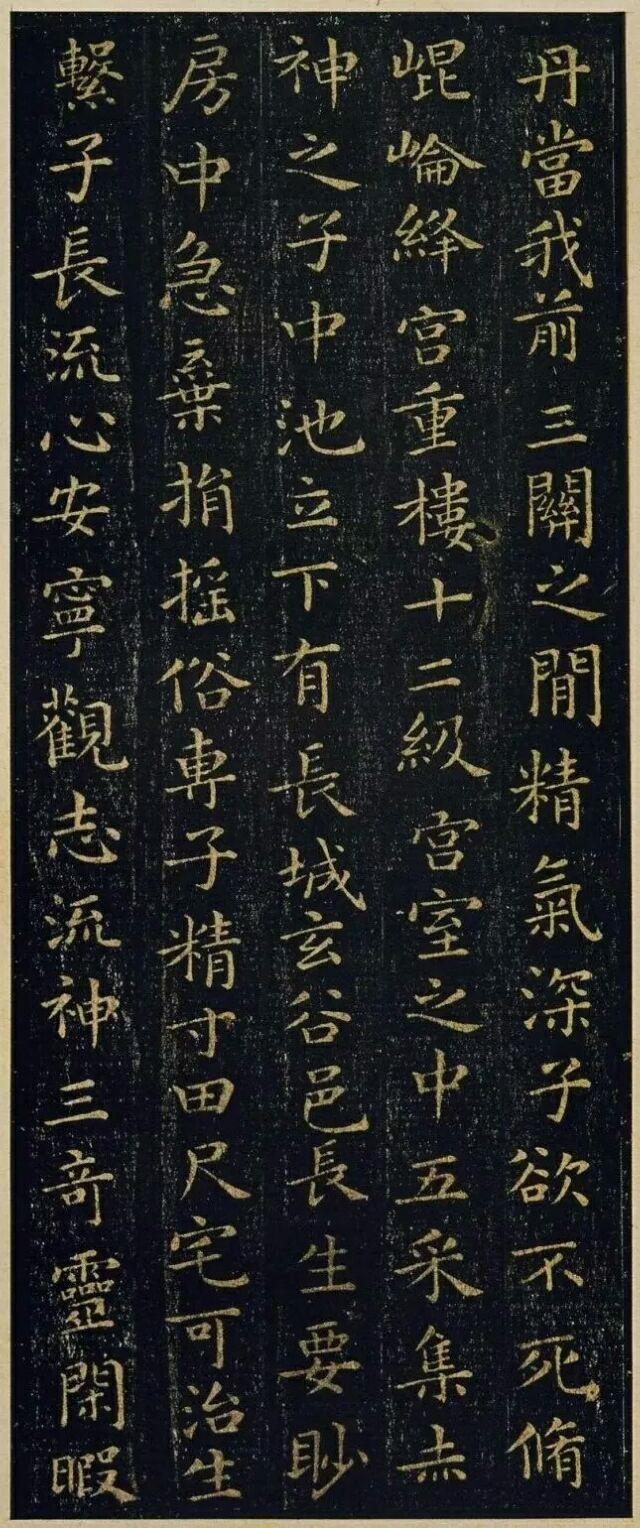 丹當我前三關之間精氣深子欲不死脩
崐崘絳宫重樓十二級宫室之中五采集赤
神之子中池立下有長城玄谷邑長生要眇
房中急棄捐摇俗專子精寸田尺宅可治生
繫子長流心安寧觀志流神三奇靈閑暇